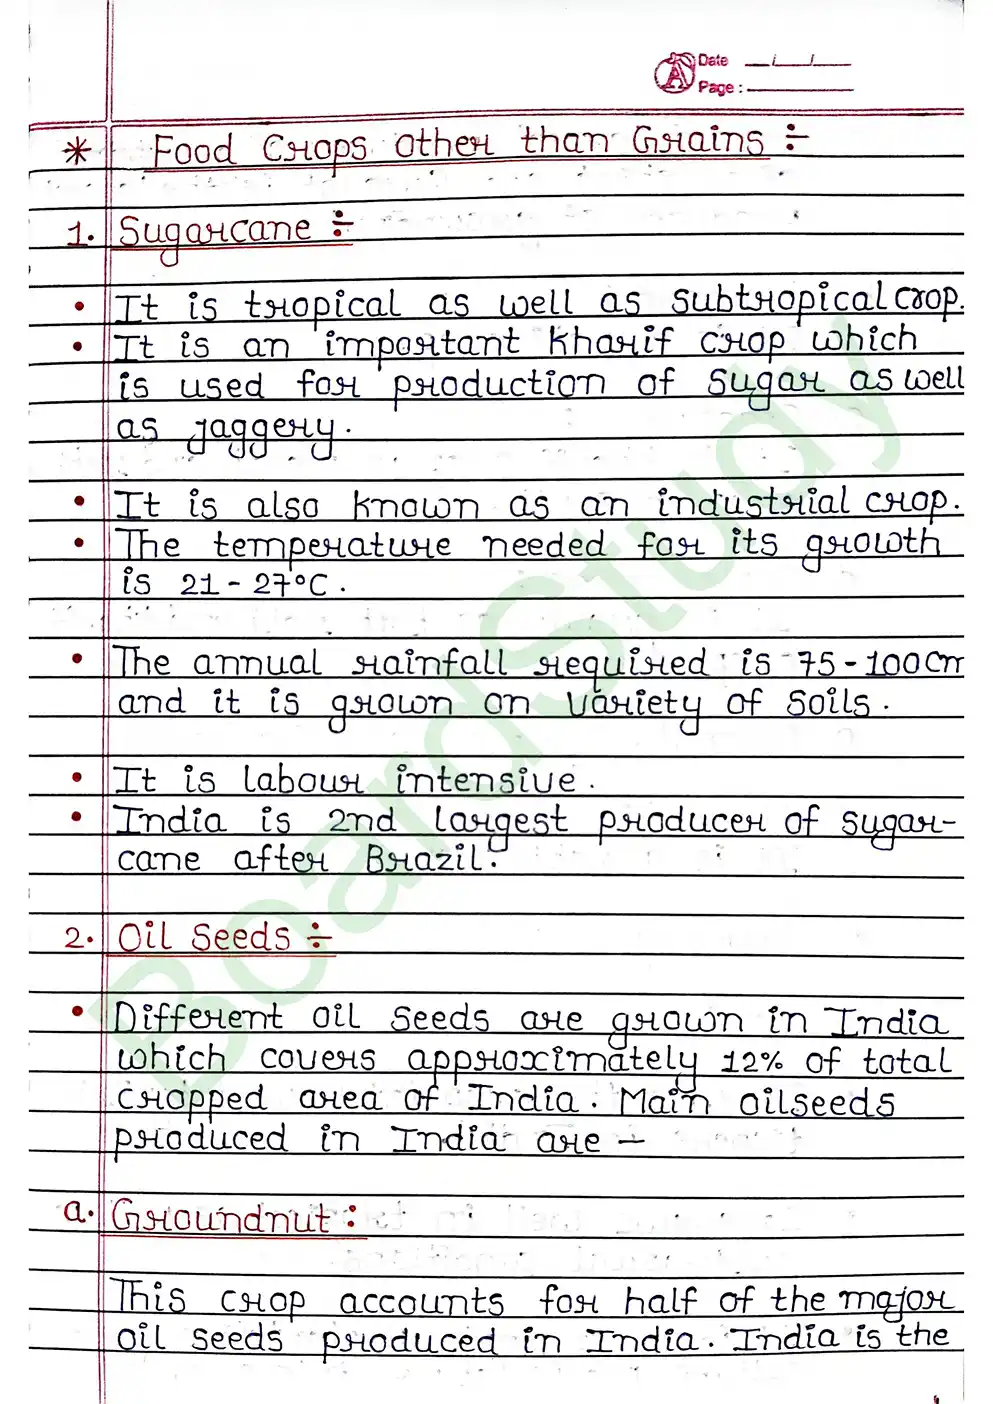 Date __/__/__
Page :
* Food Crops other than Grains ÷
1. Sugarcane ÷
• It is tropical as well as subtropical crop.
• It is an important kharif crop which
is used for production of sugar as well
as jaggery.
• It is also known as an industrial crop.
• The temperature needed for its growth
is 21 - 27°C.
• The annual rainfall required is 75 - 100cm
and it is grown on variety of soils.
• It is labour intensive.
• India is 2nd largest producer of sugar-
cane after Brazil.
2. Oil seeds ÷
• Different oil seeds are grown in India
which covers approximately 12% of total
cropped area of India. Main oilseeds
produced in India are –
a. Groundnut :
This crop accounts for half of the major
oil seeds produced in India. India is the
BoardStudy